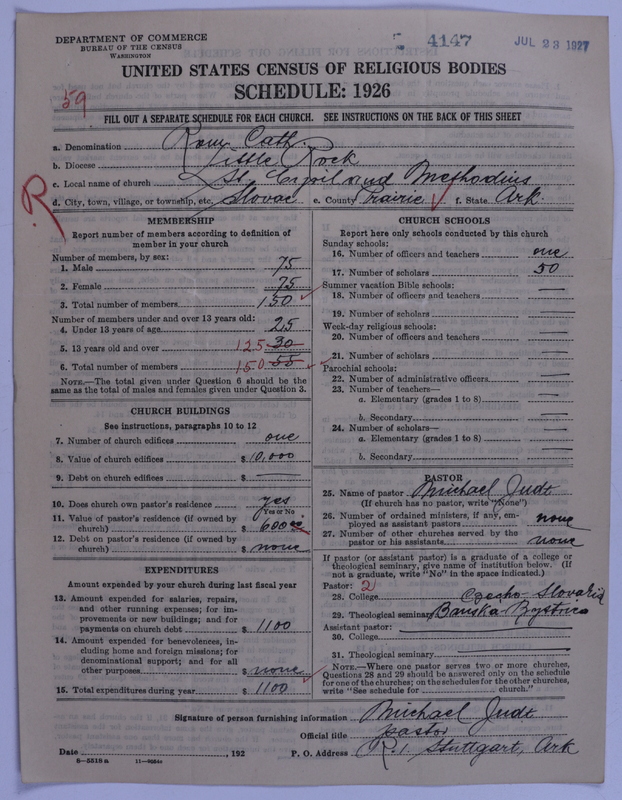 DEPARTMENT OF COMMERCE
BUREAU OF THE CENSUS
WASHINGTON
4147
JUL 23 1927
UNITED STATES CENSUS OF RELIGIOUS BODIES
SCHEDULE: 1926
59
FILL OUT A SEPARATE SCHEDULE FOR EACH CHURCH. SEE INSTRUCTIONS ON THE BACK OF THIS SHEET
a. Denomination Rom. Cath.
b. Diocese Little Rock
c. Local name of church St. Cyril and Methodius
d. City, town, village, or township, etc. Slovac e. County Prairie f. State Ark.
R
MEMBERSHIP
Report number of members according to definition of member in your church
Number of members, by sex:
1. Male 75
2. Female 75
3. Total number of members 150
Number of members under and over 13 years old:
4. Under 13 years of age 25
5. 13 years old and over 125 30
6. Total number of members 150 55
NOTE.—The total given under Question 6 should be the same as the total of males and females given under Question 3.
CHURCH BUILDINGS
See instructions, paragraphs 10 to 12
7. Number of church edifices one
8. Value of church edifices $ 10,000
9. Debt on church edifices $ —
10. Does church own pastor's residence yes
Yes or No
11. Value of pastor's residence (if owned by church) $ 600
12. Debt on pastor's residence (if owned by church) $ none
EXPENDITURES
Amount expended by your church during last fiscal year
13. Amount expended for salaries, repairs, and other running expenses; for improvements or new buildings; and for payments on church debt $ 1100
14. Amount expended for benevolences, including home and foreign missions; for denominational support; and for all other purposes $ none
15. Total expenditures during year $ 1100
CHURCH SCHOOLS
Report here only schools conducted by this church
Sunday schools:
16. Number of officers and teachers one
17. Number of scholars 50
Summer vacation Bible schools:
18. Number of officers and teachers —
19. Number of scholars —
Week-day religious schools:
20. Number of officers and teachers —
21. Number of scholars —
Parochial schools:
22. Number of administrative officers —
23. Number of teachers—
a. Elementary (grades 1 to 8) —
b. Secondary —
24. Number of scholars—
a. Elementary (grades 1 to 8) —
b. Secondary —
PASTOR
25. Name of pastor Michael Judt
(If church has no pastor, write "None")
26. Number of ordained ministers, if any, employed as assistant pastors none
27. Number of other churches served by the pastor or his assistants none
If pastor (or assistant pastor) is a graduate of a college or theological seminary, give name of institution below. (If not a graduate, write "No" in the space indicated.)
Pastor: 2
28. College Czecho-Slovakia
29. Theological seminary Banska Bystrica
Assistant pastor:
30. College —
31. Theological seminary —
NOTE.—Where one pastor serves two or more churches, Questions 28 and 29 should be answered only on the schedule for one of the churches; on the schedules for the other churches, write "See schedule for ........ church."
Signature of person furnishing information Michael Judt
Official title pastor
Date , 192 P. O. Address R. 1. Stuttgart, Ark
8—5518 a